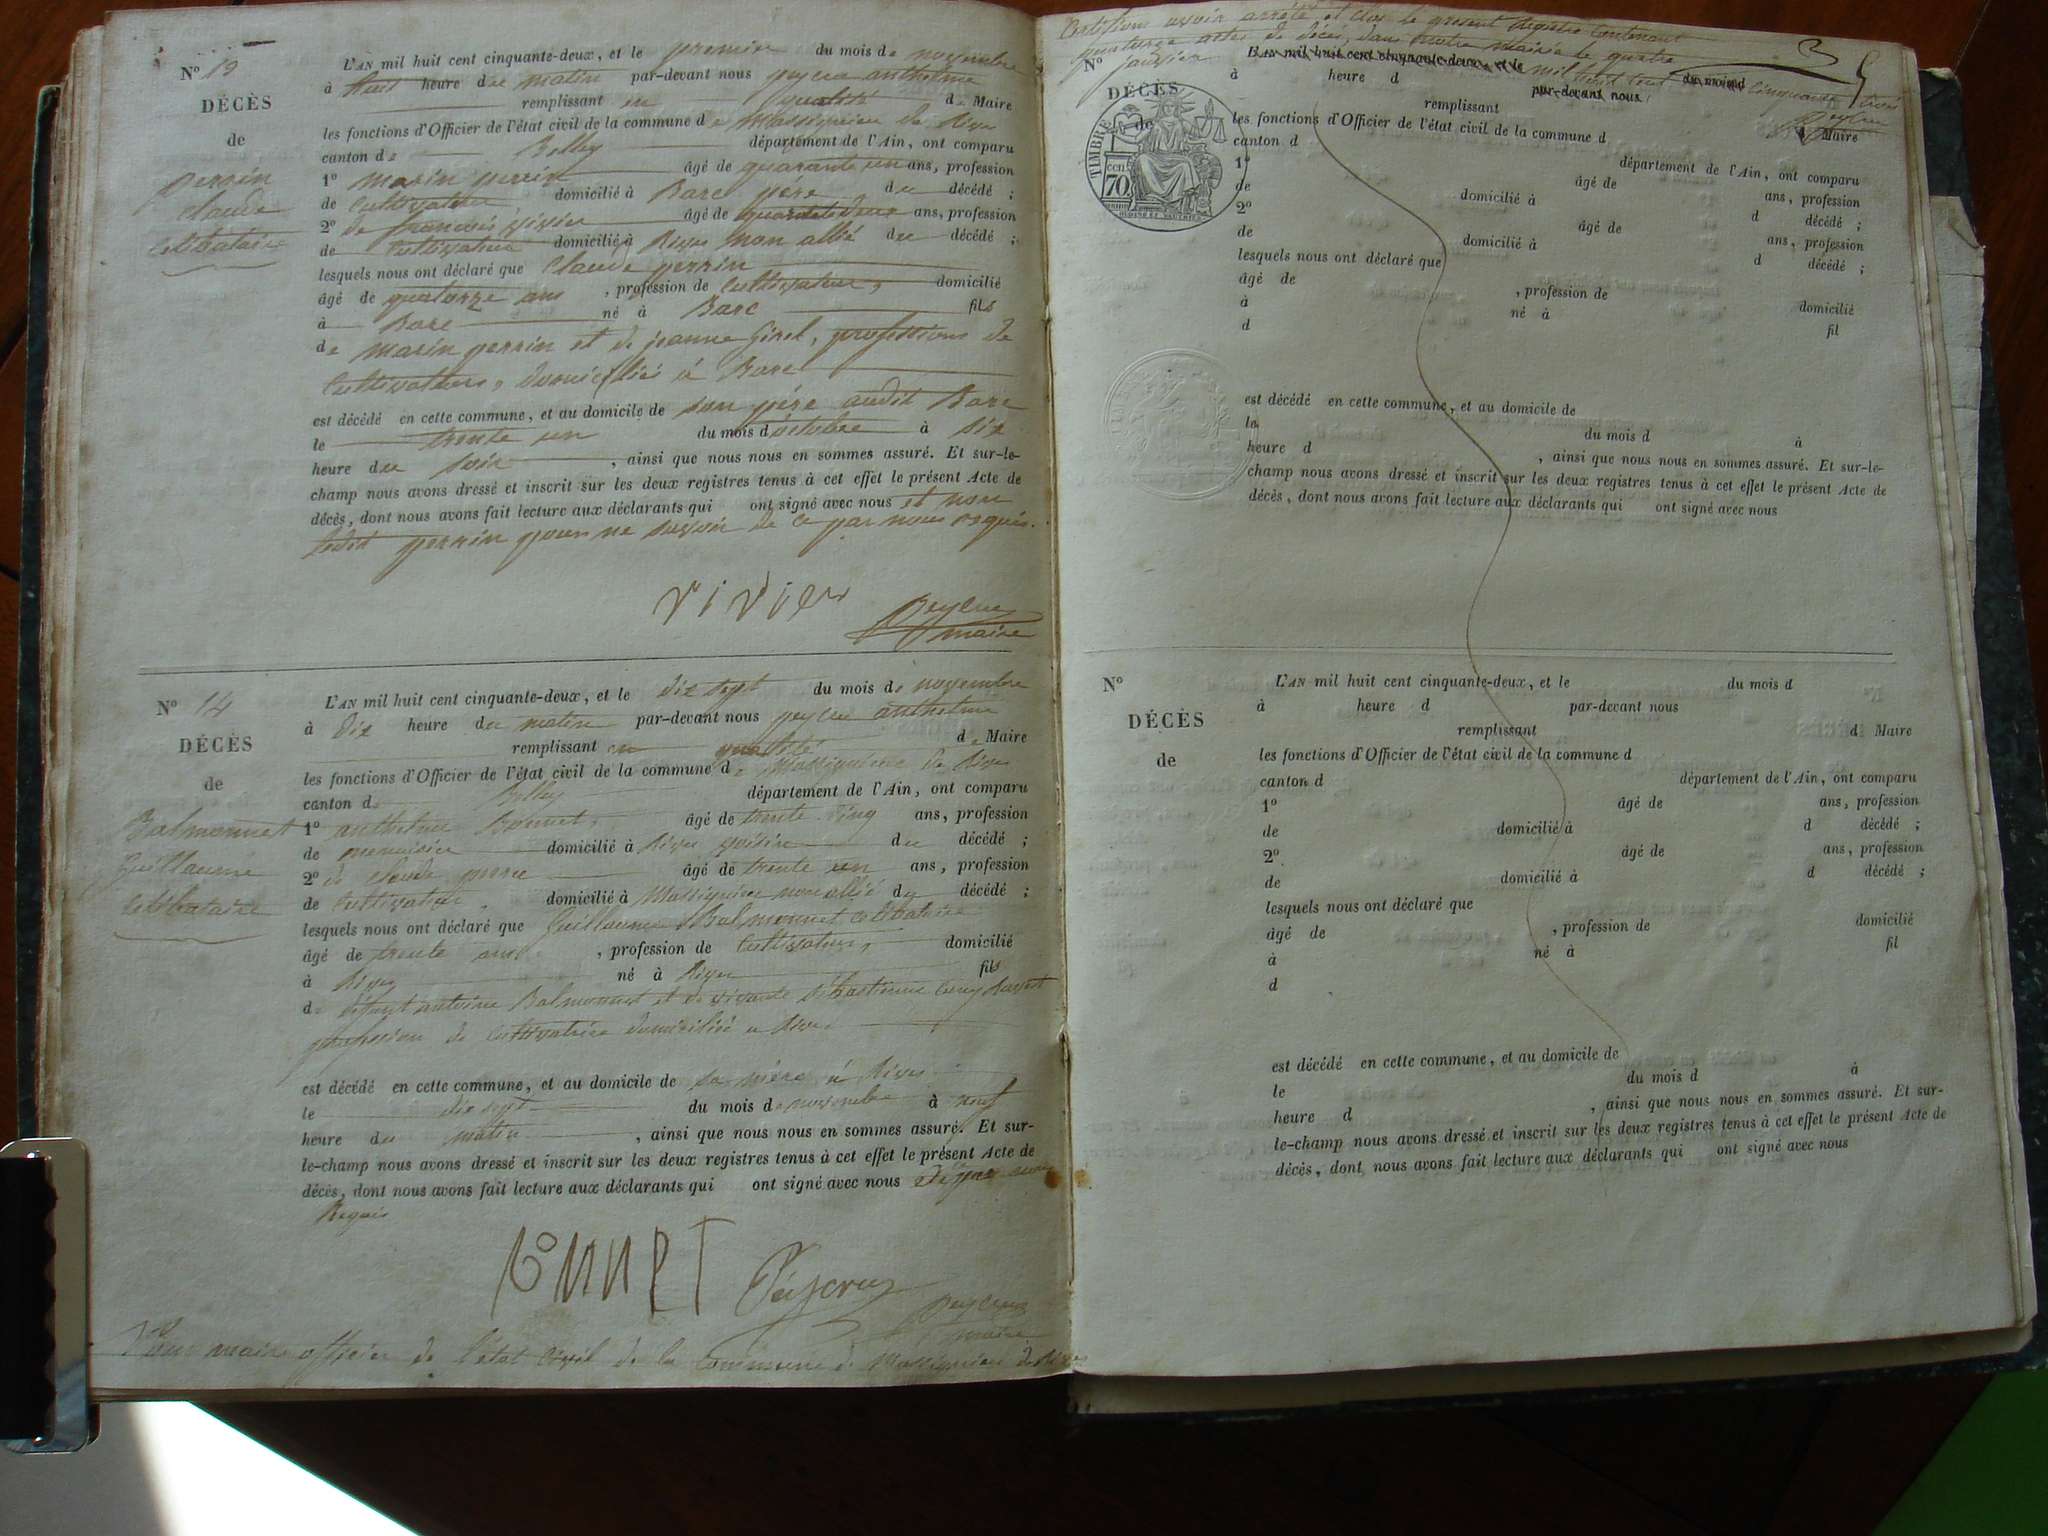 Nº 13
DÉCÈS
de
perrin
Claude
Célibataire
L'AN mil huit cent cinquante-deux, et le premier du mois de novembre
à huit heure du matin par-devant nous peycru anthelme
remplissant en qualité de Maire
les fonctions d'Officier de l'état civil de la commune de Massignieu de Rives
canton de Belley département de l'Ain, ont comparu
1º marin perrin âgé de quarante un ans, profession
de Cultivateur domicilié à Barc père du décédé ;
2º de françois vivier âgé de quarante deux ans, profession
de Cultivateur domicilié à Rives non allié du décédé ;
lesquels nous ont déclaré que Claude perrin
âgé de quatorze ans , profession de Cultivateur, domicilié
à Barc né à Barc fils
de marin perrin et de jeanne Girel, professions de
Cultivateurs, domiciliés à Barc
est décédé en cette commune, et au domicile de son père audit Barc
le trente un du mois d'octobre à six
heure du soir , ainsi que nous nous en sommes assuré. Et sur-le-
champ nous avons dressé et inscrit sur les deux registres tenus à cet effet le présent Acte de
décès, dont nous avons fait lecture aux déclarants qui ont signé avec nous et non
ledit perrin pour ne savoir de ce par nous requis.
vivier
peycru
maire
Nº 14
DÉCÈS
de
Balmonnet
Guillaume
Célibataire
L'AN mil huit cent cinquante-deux, et le dix sept du mois de novembre
à dix heure du matin par-devant nous peycru anthelme
remplissant en qualité de Maire
les fonctions d'Officier de l'état civil de la commune de Massignieu de Rives
canton de Belley département de l'Ain, ont comparu
1º anthelme Bonnet, âgé de trente cinq ans, profession
de menuisier domicilié à Rives voisin du décédé ;
2º de Claude âgé de trente un ans, profession
de Cultivateur domicilié à Massignieu non allié du décédé ;
lesquels nous ont déclaré que Guillaume Balmonnet célibataire
âgé de trente ans , profession de Cultivateur, domicilié
à Rives né à Rives fils
de défunt antoine Balmonnet et de vivante Sébastienne
profession de Cultivatrice domiciliée à Rives
est décédé en cette commune, et au domicile de sa mère à Rives
le dix sept du mois de novembre à neuf
heure du matin , ainsi que nous nous en sommes assuré. Et sur-
le-champ nous avons dressé et inscrit sur les deux registres tenus à cet effet le présent Acte de
décès, dont nous avons fait lecture aux déclarants qui ont signé avec nous de par nous
Requis
bonnet
peycru
maire
Nous maire officier de l'état civil de la Commune de Massignieu de Rives
Certifions avoir arrêté et clos le présent Registre Contenant
quatorze actes de décès, dans notre mairie le quatre
janvier mil huit cent cinquante trois
Peycru
Nº
DÉCÈS
de
TIMBRE
CEN
70
L'AN mil huit cent cinquante-deux, et le du mois d
à heure d par-devant nous
remplissant d Maire
les fonctions d'Officier de l'état civil de la commune d
canton d département de l'Ain, ont comparu
1º âgé de ans, profession
de domicilié à d décédé ;
2º âgé de ans, profession
de domicilié à d décédé ;
lesquels nous ont déclaré que
âgé de , profession de domicilié
à né à fil
d
est décédé en cette commune, et au domicile de
le du mois d à
heure d , ainsi que nous nous en sommes assuré. Et sur-le-
champ nous avons dressé et inscrit sur les deux registres tenus à cet effet le présent Acte de
décès, dont nous avons fait lecture aux déclarants qui ont signé avec nous
Nº
DÉCÈS
de
L'AN mil huit cent cinquante-deux, et le du mois d
à heure d par-devant nous
remplissant d Maire
les fonctions d'Officier de l'état civil de la commune d
canton d département de l'Ain, ont comparu
1º âgé de ans, profession
de domicilié à d décédé ;
2º âgé de ans, profession
de domicilié à d décédé ;
lesquels nous ont déclaré que
âgé de , profession de domicilié
à né à fil
d
est décédé en cette commune, et au domicile de
le du mois d à
heure d , ainsi que nous nous en sommes assuré. Et sur-
le-champ nous avons dressé et inscrit sur les deux registres tenus à cet effet le présent Acte de
décès, dont nous avons fait lecture aux déclarants qui ont signé avec nous